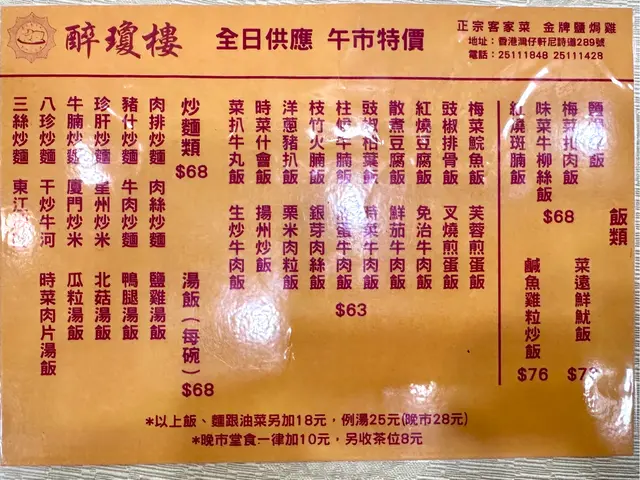 醉瓊樓
全日供應 午市特價
正宗客家菜 金牌鹽焗雞
地址：香港灣仔軒尼詩道289號
電話：25111848 25111428
飯類
梅菜扣肉飯
味菜牛柳絲飯
紅燒斑腩飯
$68
菜遠鮮魷飯
鹹魚雞粒炒飯
$76
梅菜鯇魚飯 芙蓉煎蛋飯
豉椒排骨飯 叉燒煎蛋飯
紅燒豆腐飯 免治牛肉飯
散煮豆腐飯 鮮茄牛肉飯
豉椒柏葉飯 時菜牛肉飯
柱侯牛腩飯
枝竹火腩飯 銀芽肉絲飯
洋蔥豬扒飯 粟米肉粒飯
時菜什會飯 揚州炒飯
菜扒牛丸飯 生炒牛肉飯
$63
炒麵類
$68
肉排炒麵 肉絲炒麵
豬什炒麵 牛肉炒麵
珍肝炒麵 星州炒米
牛腩炒麵 廈門炒米
八珍炒麵 干炒牛河
三絲炒麵 東江
湯飯（每碗）
$68
鹽雞湯飯
鴨腿湯飯
北菇湯飯
瓜粒湯飯
時菜肉片湯飯
*以上飯、麵跟油菜另加18元，例湯25元(晚市28元)
*晚市堂食一律加10元，另收茶位8元